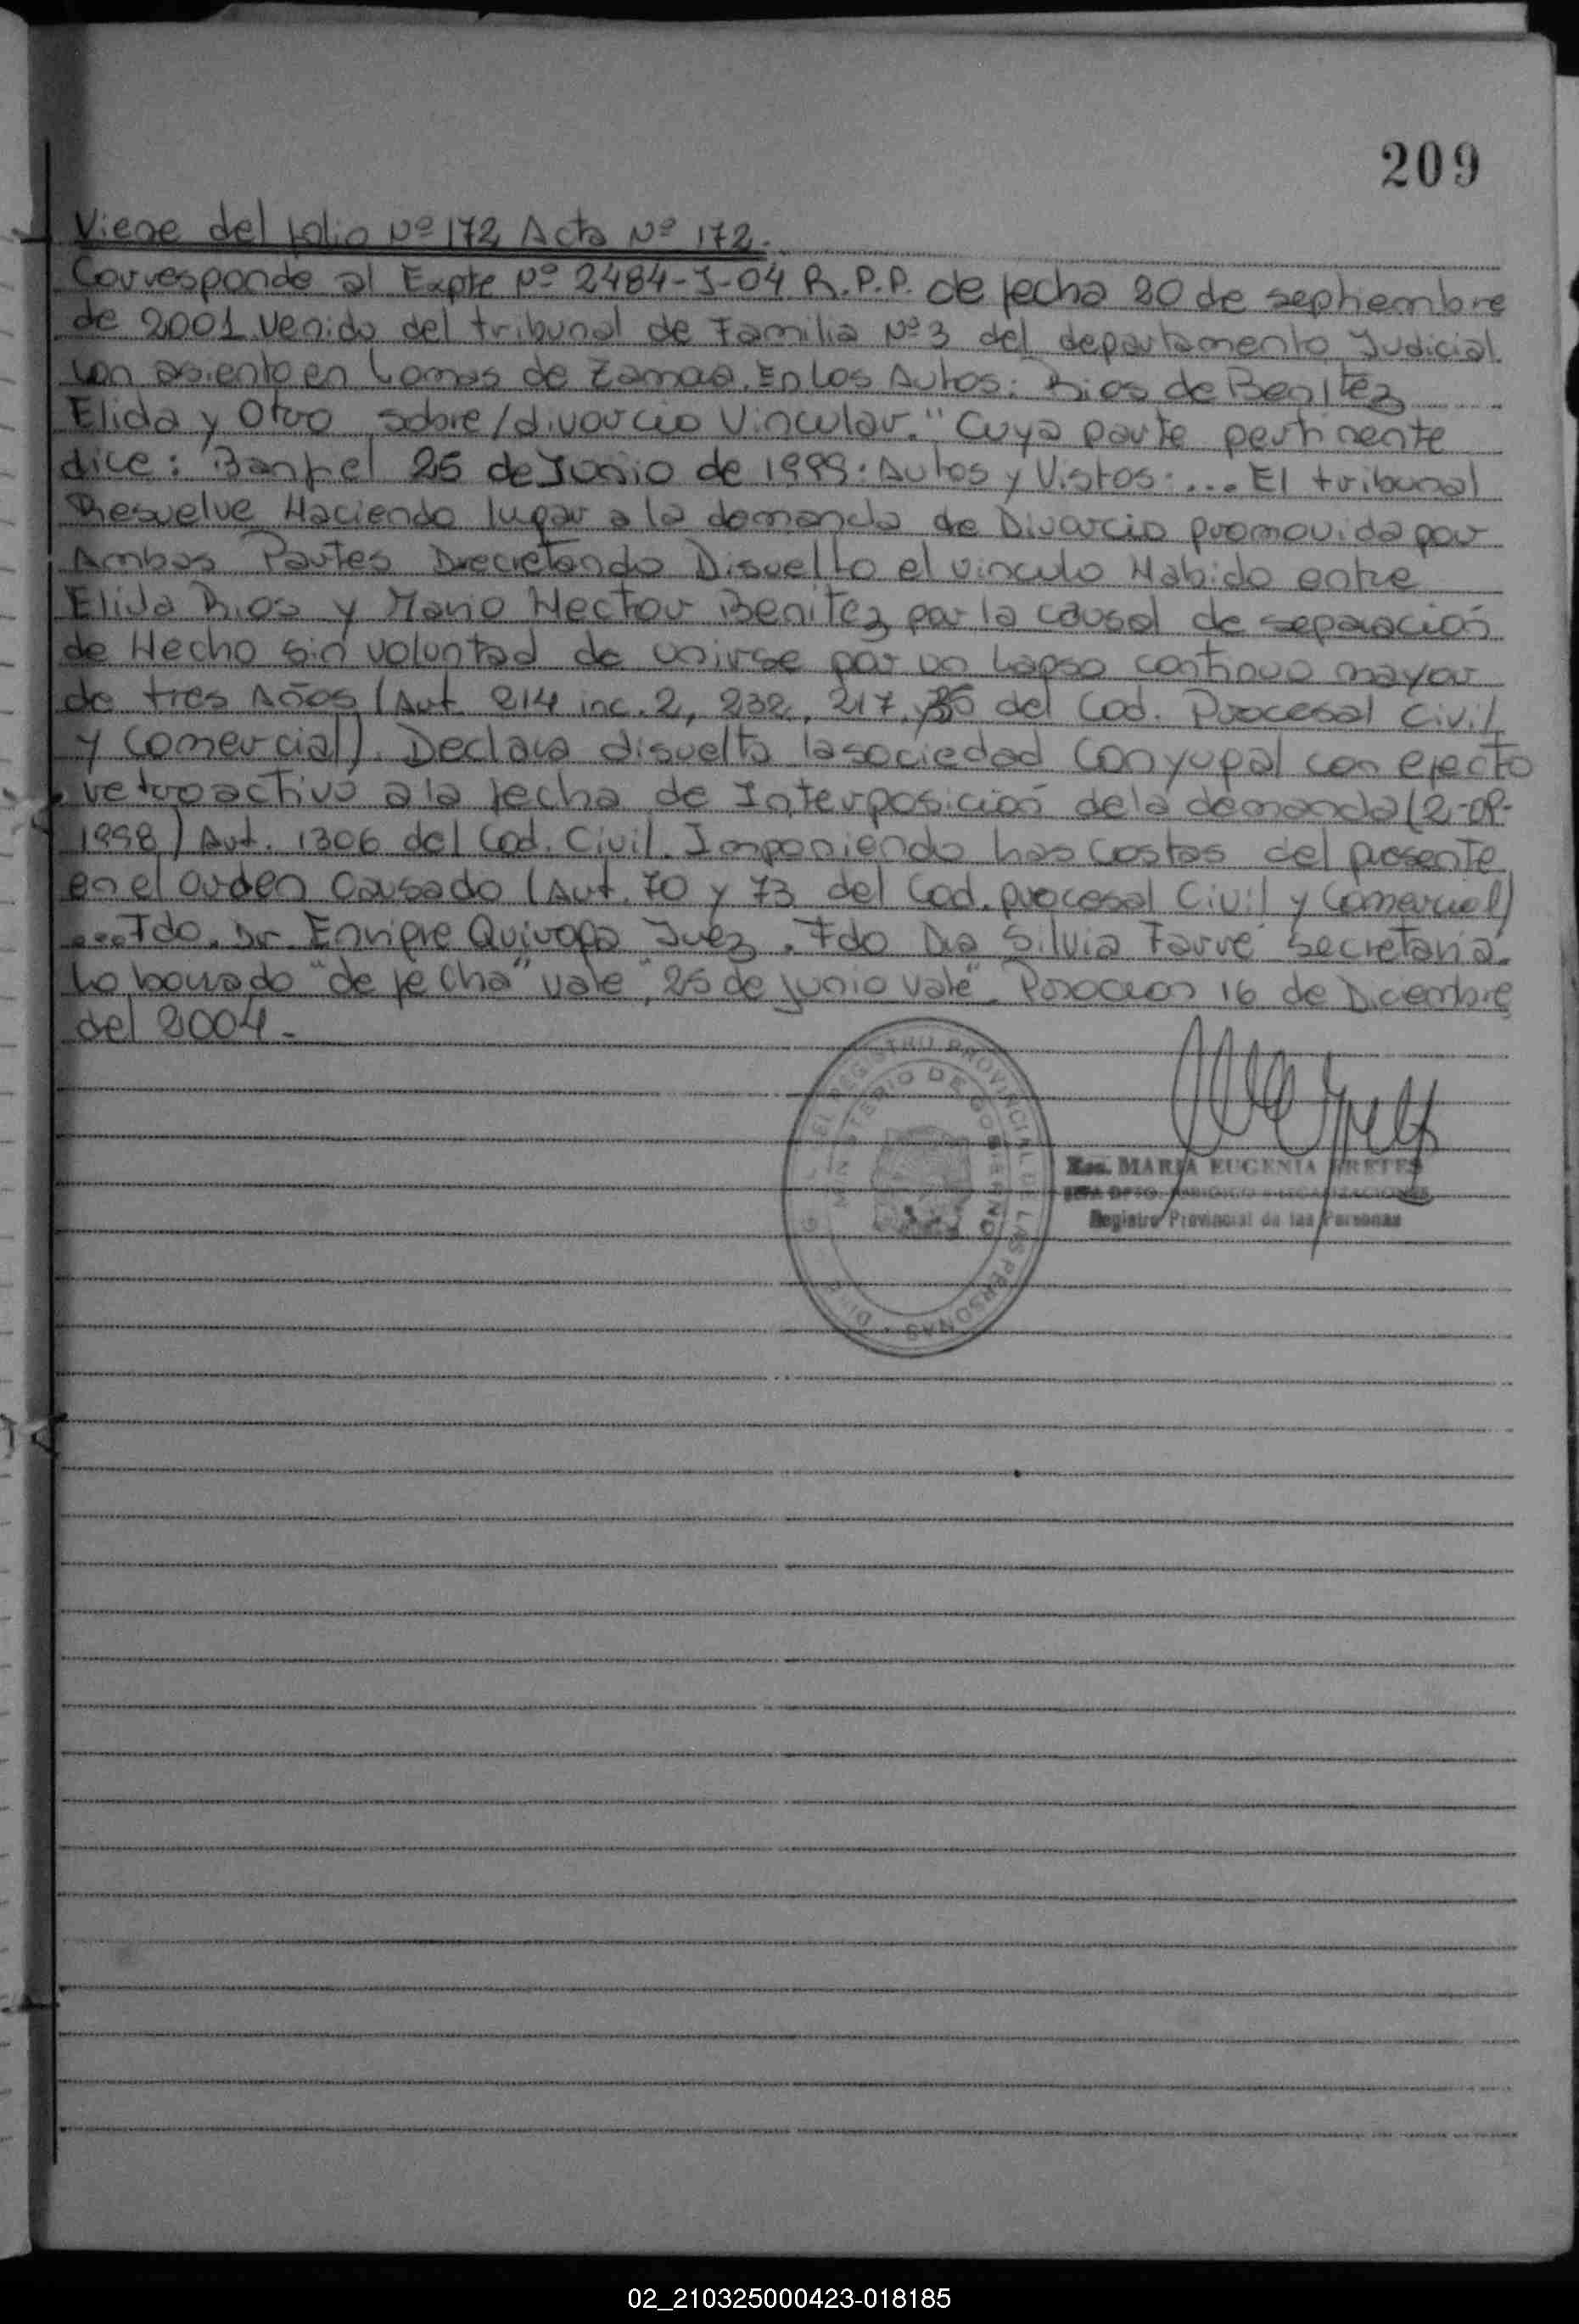 209
Viene del folio Nº 172 Acta Nº 172.
Corresponde al Expte Nº 2484-J-04 R.P.P. de fecha 20 de septiembre
de 2001 Venido del tribunal de Familia Nº 3 del departamento Judicial
con asiento en Lomas de Zamora. En Los Autos: Rios de Benitez
Elida y Otro sobre/divorcio Vincular." Cuya parte pertinente
dice: Banfiel 25 de Junio de 1999: Autos y Vistos: ... El tribunal
Resuelve Haciendo lugar a la demanda de Divorcio promovida por
Ambas Partes Decretando Disuelto el vinculo Habido entre
Elida Rios y Mario Hector Benitez por la causal de separación
de Hecho sin voluntad de unirse por un lapso continuo mayor
de tres Años (Art. 214 inc. 2, 232, 217, del Cod. Procesal Civil
y Comercial). Declara disuelta la sociedad Conyugal con efecto
retroactivo a la fecha de Interposición de la demanda (2-09-
1998) Art. 1306 del Cod. Civil. Imponiendo las Costas del presente
en el Orden Causado (Art. 70 y 73 del Cod. procesal Civil y Comercial)
...Fdo. Dr. Enrique Quiroga Juez. Fdo Dra Silvia Farre secretaria.
Lo borrado "de fecha" vale, "25 de junio vale". Posadas 16 de Diciembre
del 2004.-
REGISTRO PROVINCIAL DE LAS PERSONAS
MINISTERIO DE GOBIERNO
Esc. MARIA EUGENIA
Registro Provincial de las Personas
02_210325000423-018185